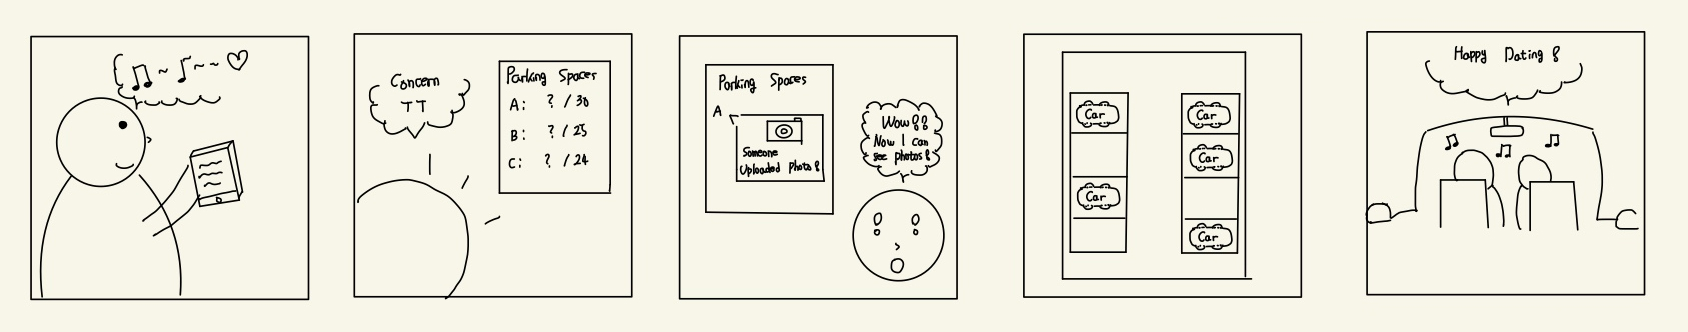 Concern
TT
Parking Spaces
A: ? / 30
B: ? / 25
C: ? / 24
Parking Spaces
A
Someone
Uploaded Photo!
Wow!!
Now I can
see photos!
Car
Car
Car
Car
Car
Happy Dating!